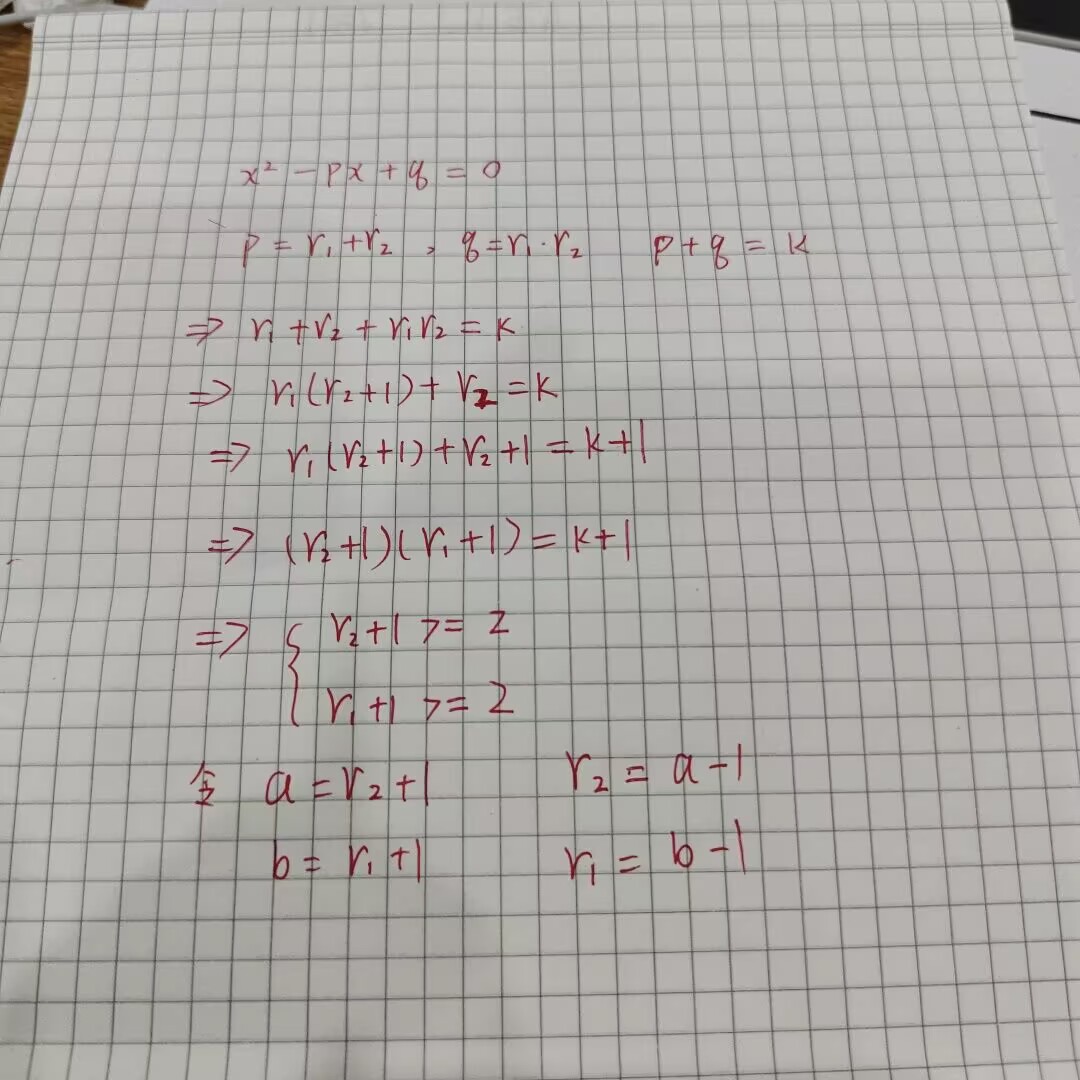 x² - px + q = 0
p = r₁ + r₂ , q = r₁ · r₂ p + q = k
⇒ r₁ + r₂ + r₁r₂ = k
⇒ r₁(r₂+1) + r₂ = k
⇒ r₁(r₂+1) + r₂ + 1 = k+1
⇒ (r₂+1)(r₁+1) = k+1
⇒ { r₂+1 >= 2
r₁+1 >= 2
令 a = r₂+1 r₂ = a-1
b = r₁+1 r₁ = b-1